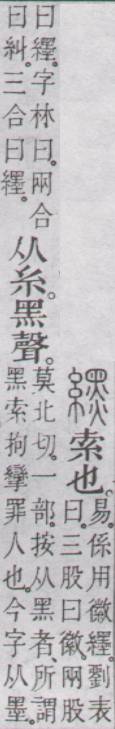 索也。
易。係用徽纆。劉表
曰。三股曰徽。兩股
曰纆。字林曰。兩合
曰糾。三合曰纆。
从糸。黑聲。
莫北切。一部。按从黑者、所謂
黑索拘攣罪人也。今字从墨。